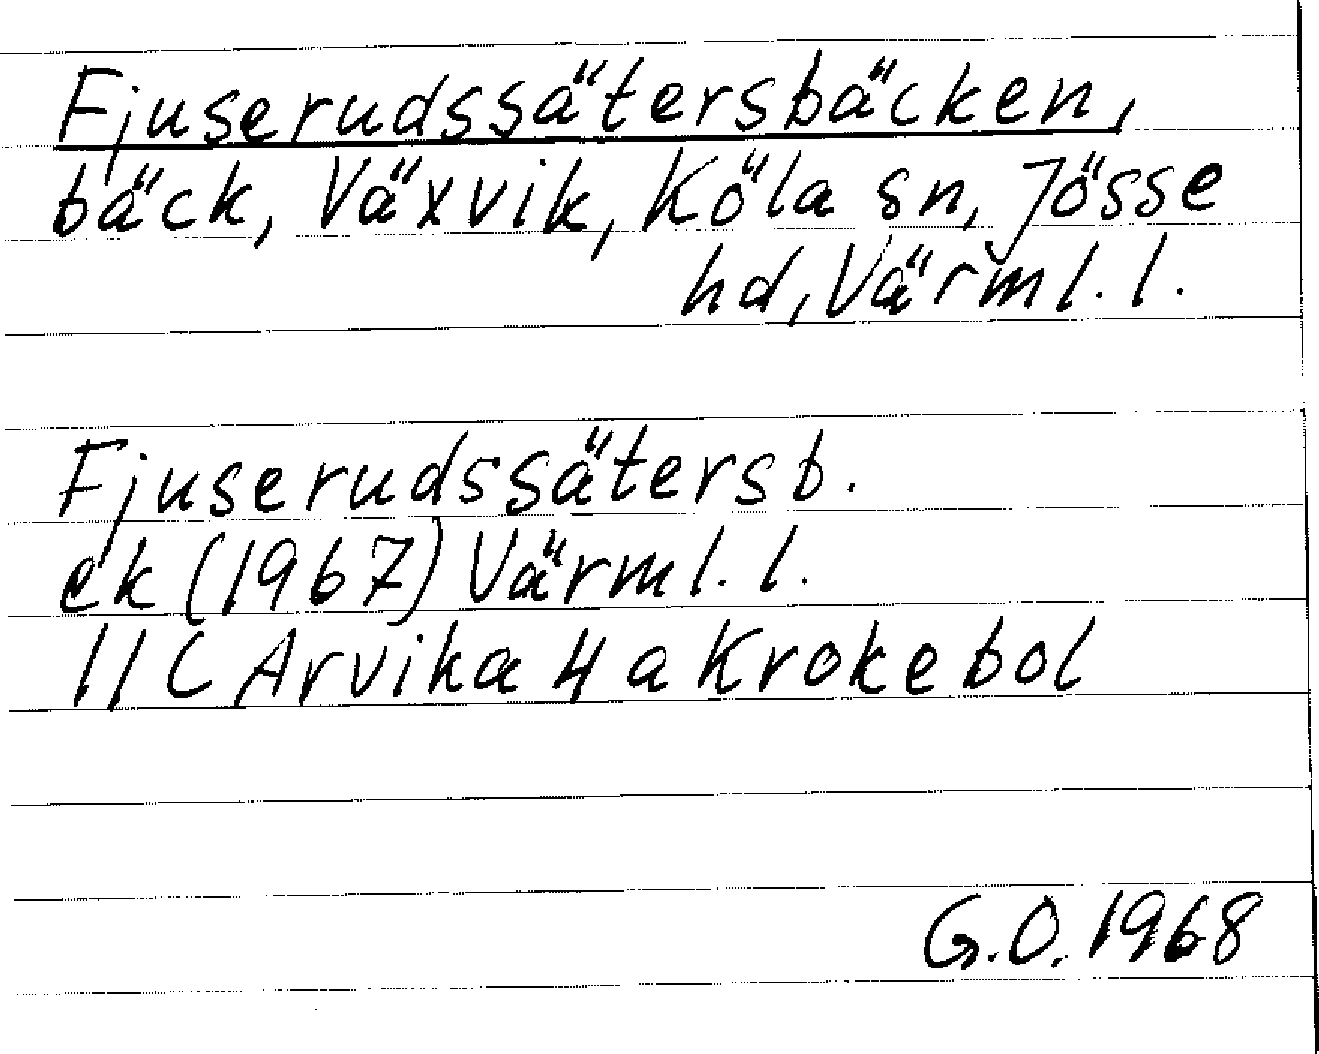 Fjuserudssätersbäcken,
bäck, Växvik, Köla sn, Jösse
hd, Värml. l.
Fjuserudssätersb.
ek (1967) Värml. l.
11 C Arvika 4 a Krokebol
G.O. 1968